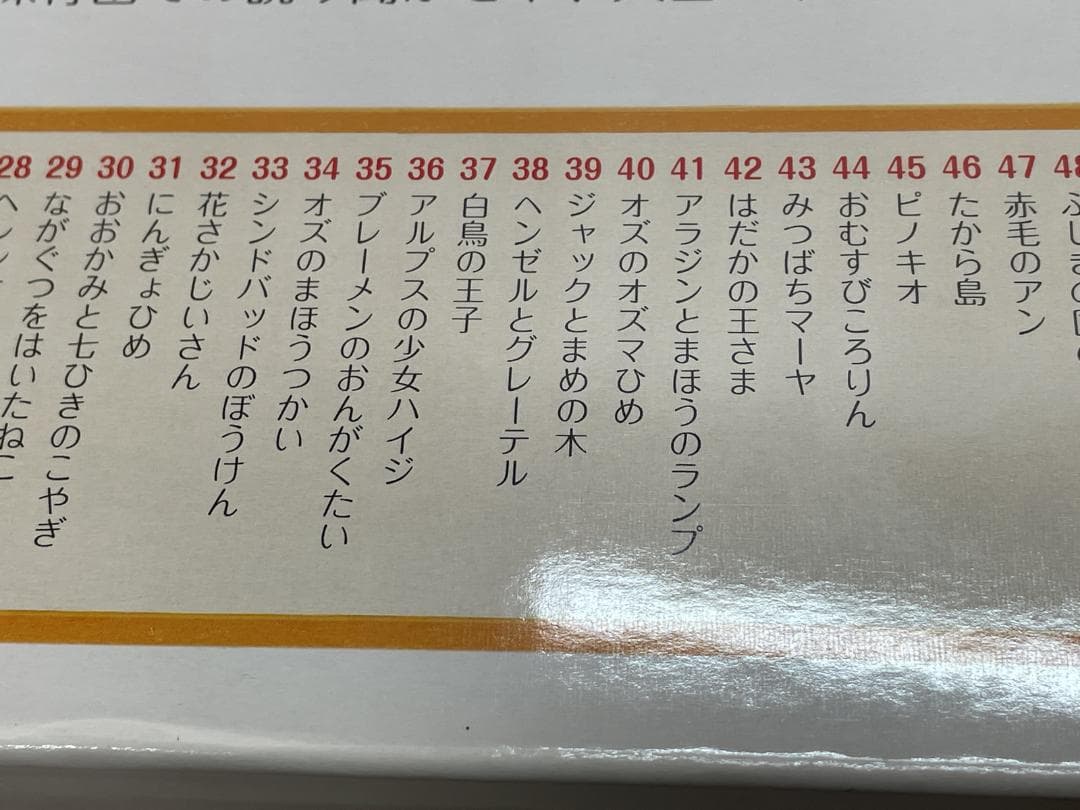 28
29 ながぐつをはいたねこ
30 おおかみと七ひきのこやぎ
31 にんぎょひめ
32 花さかじいさん
33 シンドバッドのぼうけん
34 オズのまほうつかい
35 ブレーメンのおんがくたい
36 アルプスの少女ハイジ
37 白鳥の王子
38 ヘンゼルとグレーテル
39 ジャックとまめの木
40 オズのオズマひめ
41 アラジンとまほうのランプ
42 はだかの王さま
43 みつばちマーヤ
44 おむすびころりん
45 ピノキオ
46 たから島
47 赤毛のアン
48